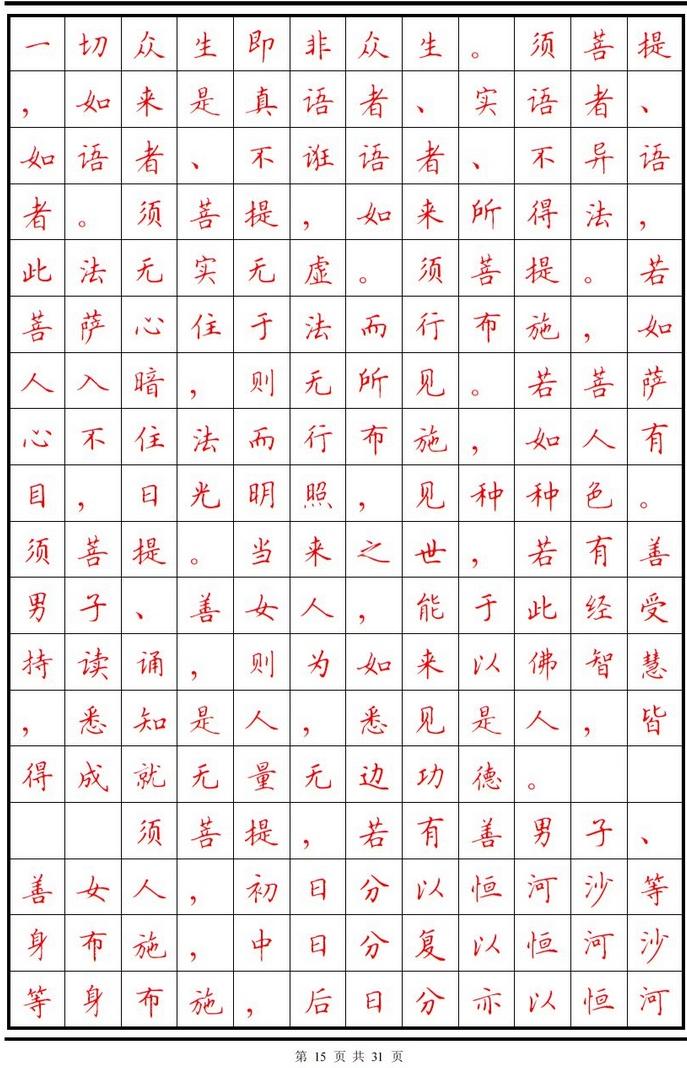 一切众生即非众生。须菩提
，如来是真语者、实语者、
如语者、不诳语者、不异语
者。须菩提，如来所得法，
此法无实无虚。须菩提。若
菩萨心住于法而行布施，如
人入暗，则无所见。若菩萨
心不住法而行布施，如人有
目，日光明照，见种种色。
须菩提。当来之世，若有善
男子、善女人，能于此经受
持读诵，则为如来以佛智慧
，悉知是人，悉见是人，皆
得成就无量无边功德。
须菩提，若有善男子、
善女人，初日分以恒河沙等
身布施，中日分复以恒河沙
等身布施，后日分亦以恒河
第 15 页 共 31 页